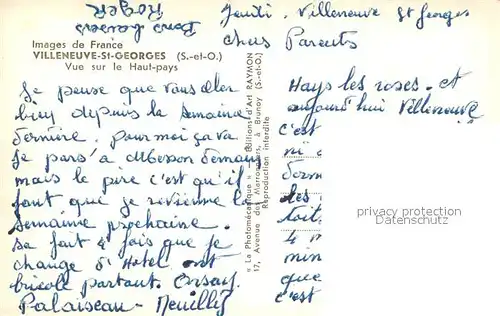 Bons baisers
Roger
Images de France
VILLENEUVE-St-GEORGES (S.-et-O.)
Vue sur le Haut-pays
Je pense que vous aller
bien depuis la semaine
dernière. pour moi ça va
Je pars à
mais le pire c'est qu'il
faut que je revienne la
semaine prochaine.
sa fait 4 fois que je
change d'Hotel ont
bricole partout. Orsay.
Palaiseau - Neuilly
« La Photomécanique » — Editions d'Art RAYMON
17, Avenue des Marronniers, à Brunoy (S.-et-O.)
Reproduction interdite
Jeudi. Villeneuve St Georges
chers Parents
Hays les roses. et
aujourd'hui Villeneuve
c'est
ni
dern
les
toit
4 m
min
que
c'est
privacy protection
Datenschutz